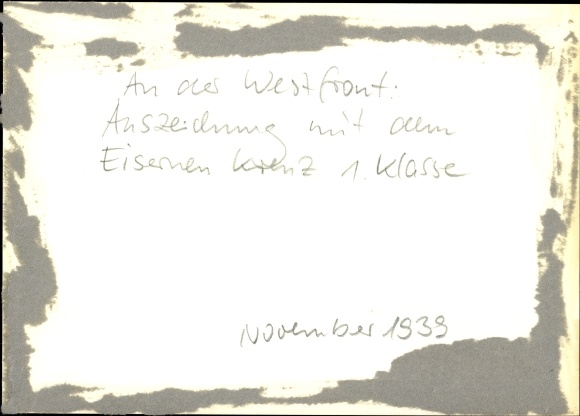 An der Westfront:
Auszeichnung mit dem
Eisernen Kreuz 1. Klasse
November 1939